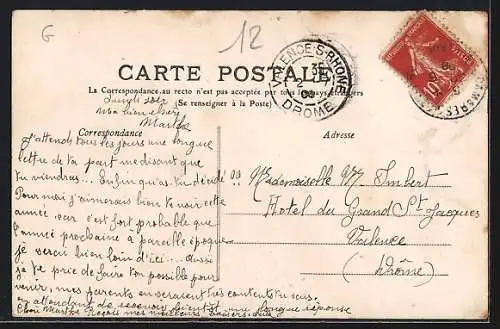 G
12
CARTE POSTALE
La Correspondance au recto n'est pas acceptée par tous les pays étrangers
(Se renseigner à la Poste)
VALENCE-S-RHONE
DROME
10
Ma bien chère
Marthe
Correspondance
Adresse
J'attends tous les jours une longue
lettre de ta part me disant que
tu viendras... Enfin qu'as-tu décidé ??
Pour moi j'aimerais bien te voir cette
année car c'est fort probable que
l'année prochaine à pareille époque
je serai bien loin d'ici... aussi
je te prie de faire ton possible pour
venir, mes parents en seraient très contents tu sais.
en attendant de recevoir bientôt une longue réponse
Chère Marthe Reçois mes meilleurs baisers.
Mademoiselle M. Imbert
Hotel du Grand St Jacques
Valence
(Drôme)